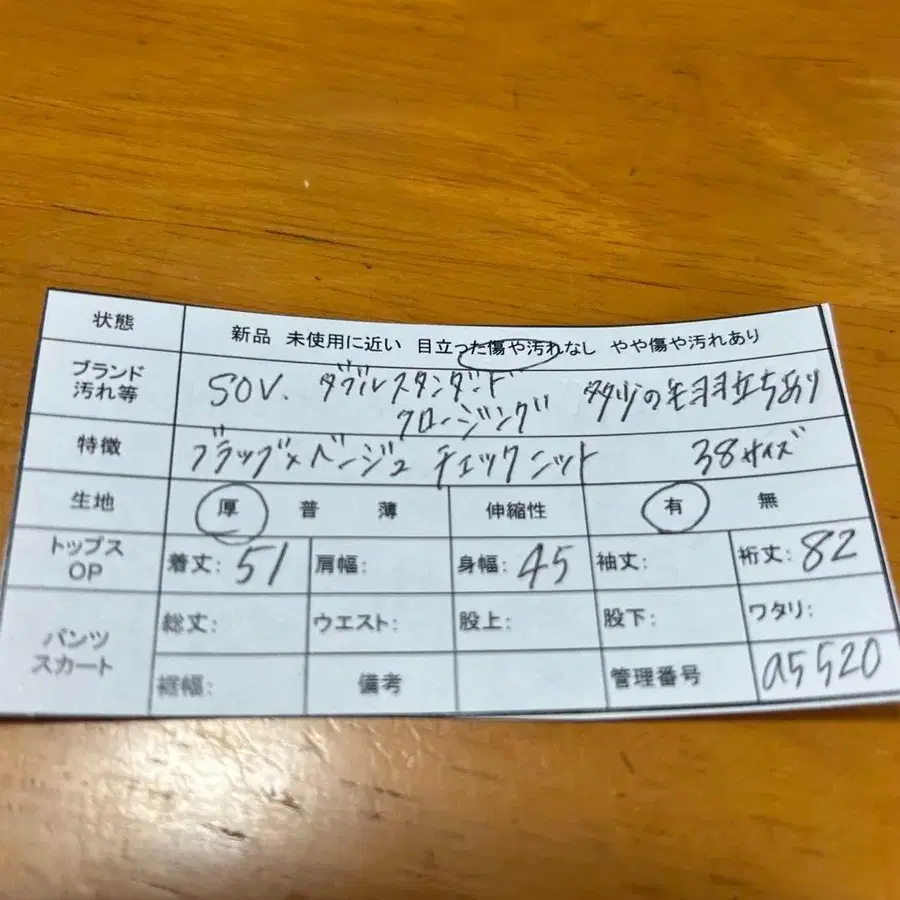 状態 新品 未使用に近い 目立った傷や汚れなし やや傷や汚れあり
ブランド SOV. ダブルスタンダード
汚れ等 クロージング の毛羽立ちあり
特徴 ブラック×ベージュ チェックニット 38サイズ
生地 厚 普 薄 伸縮性 有 無
トップス OP 着丈: 51 肩幅: 身幅: 45 袖丈: 裄丈: 82
パンツ 総丈: ウエスト: 股上: 股下: ワタリ:
スカート 裾幅: 備考 管理番号 a5520